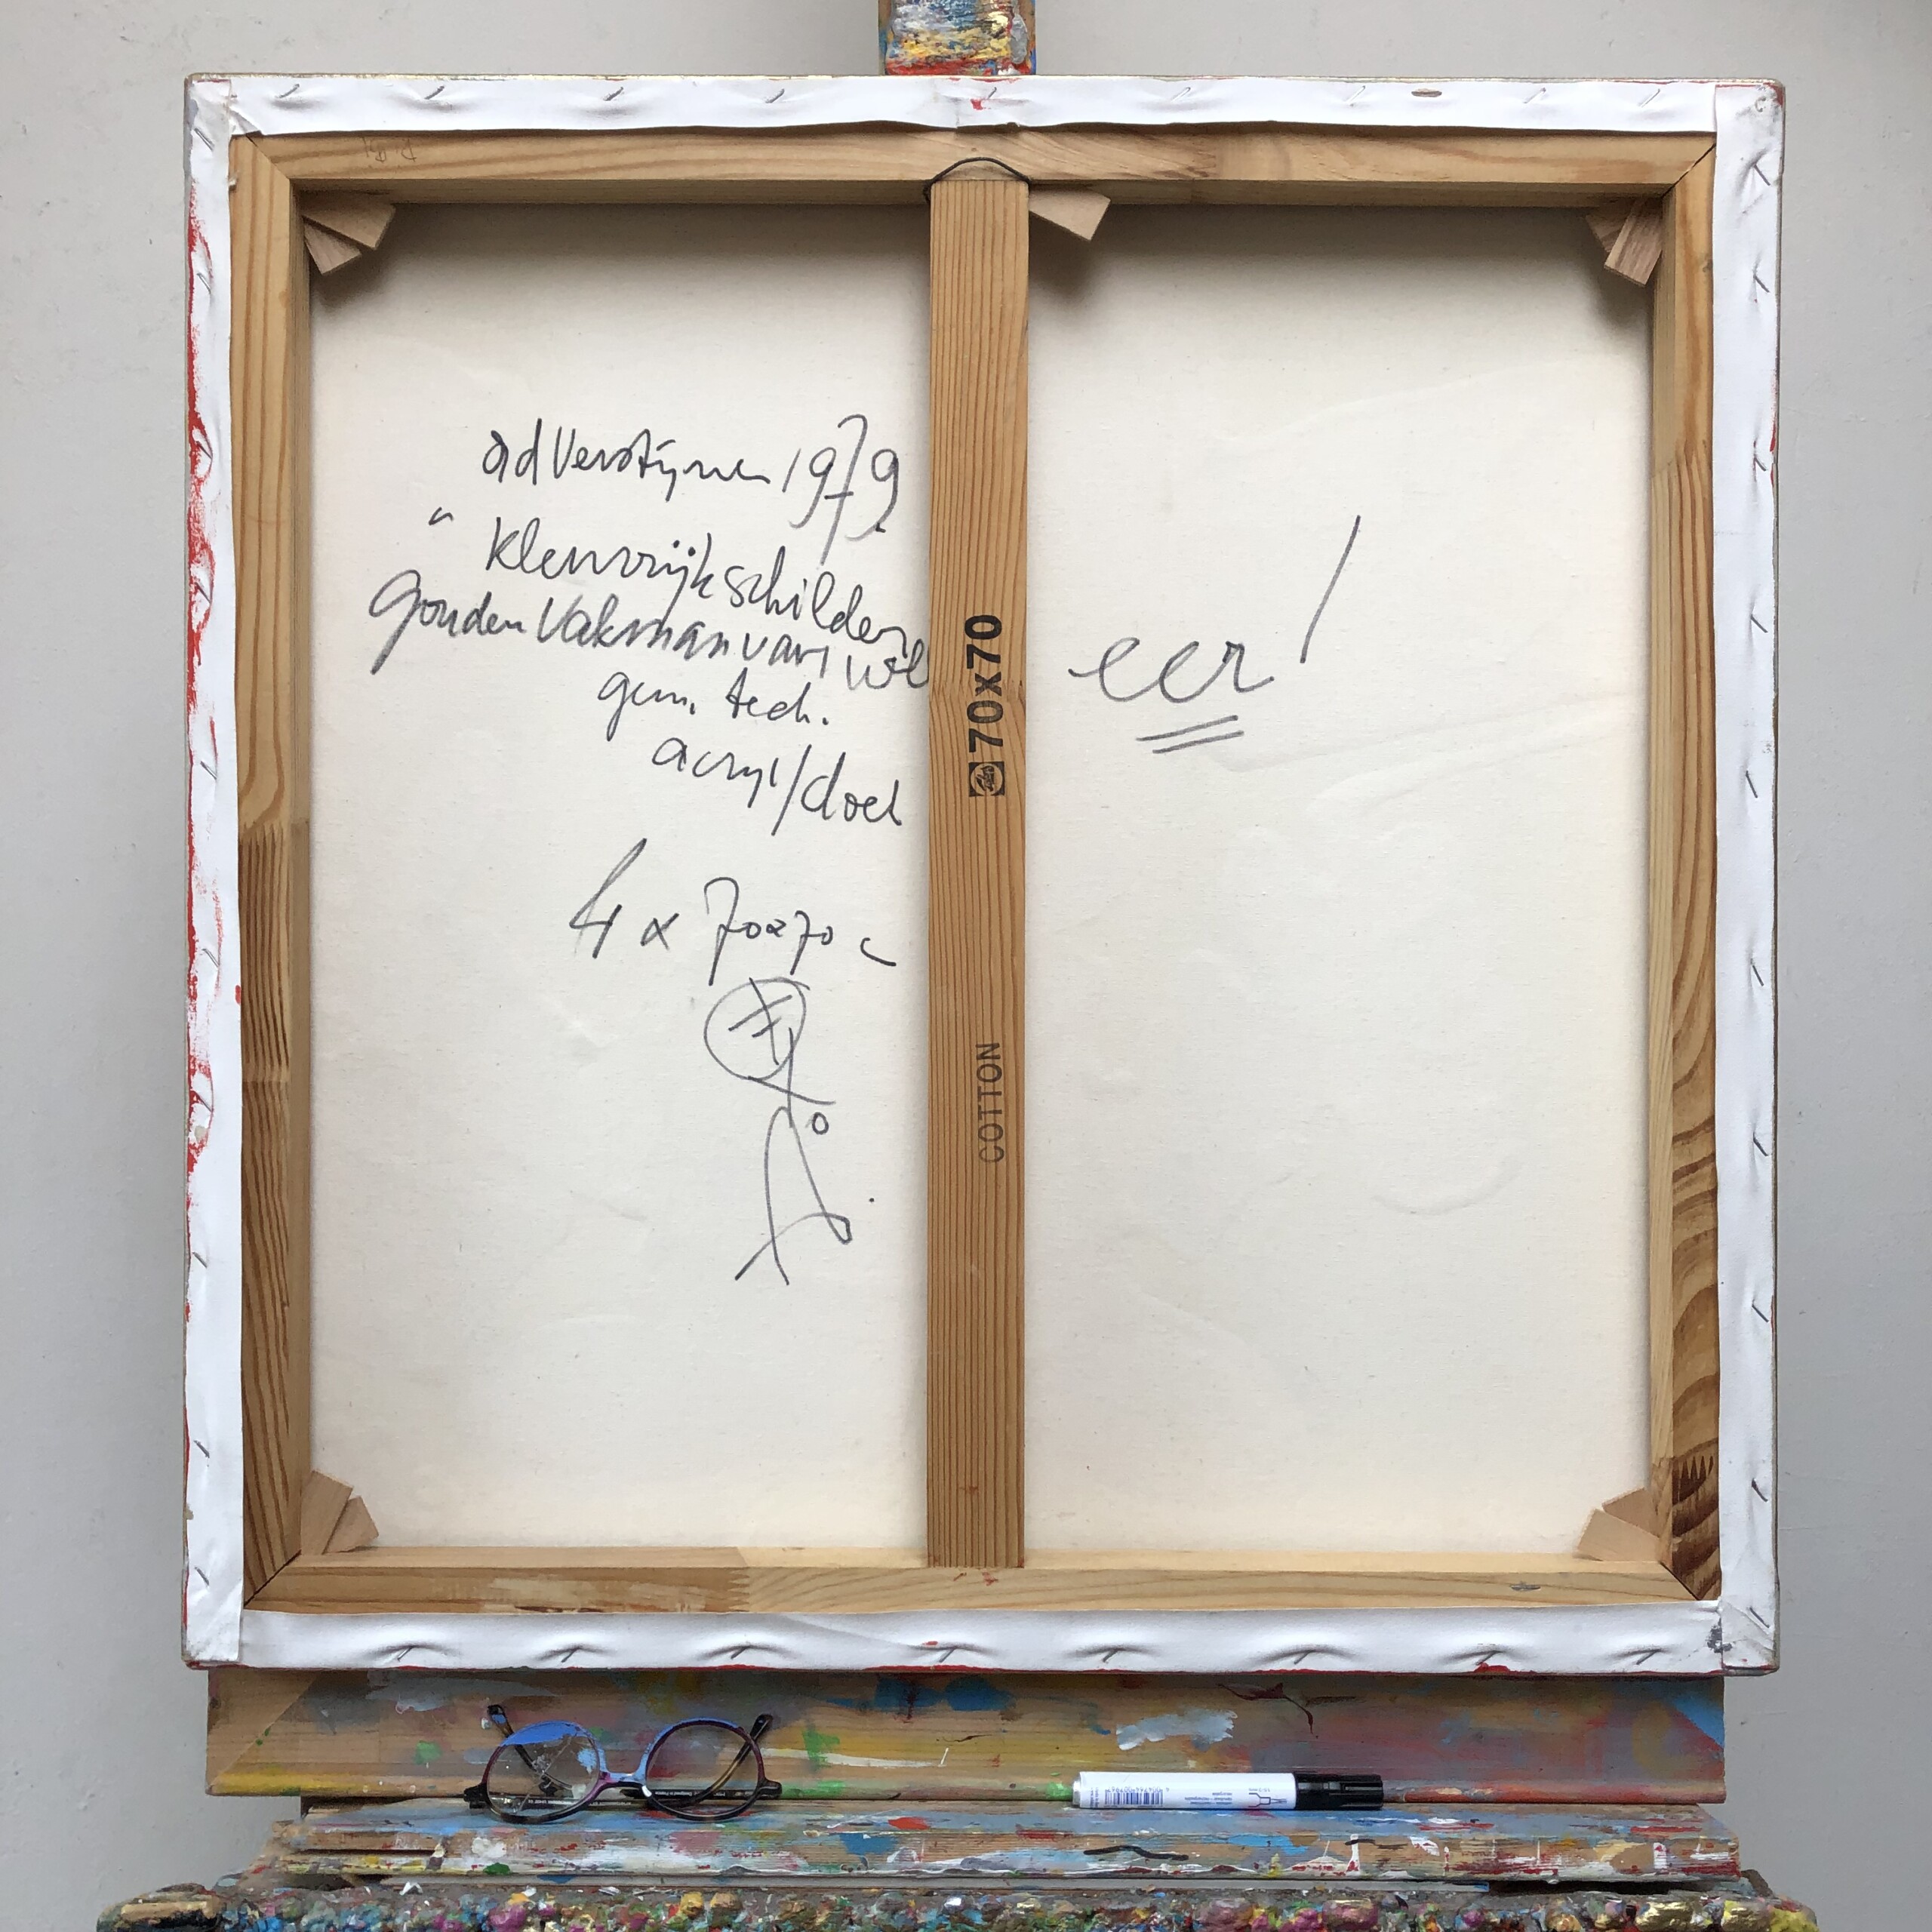 ad Verstijnen 1979
" kleurrijk schilder
gouden Vakman van wel eer!
gem. tech.
acryl/doek
4 x 70x70 c
70x70
COTTON